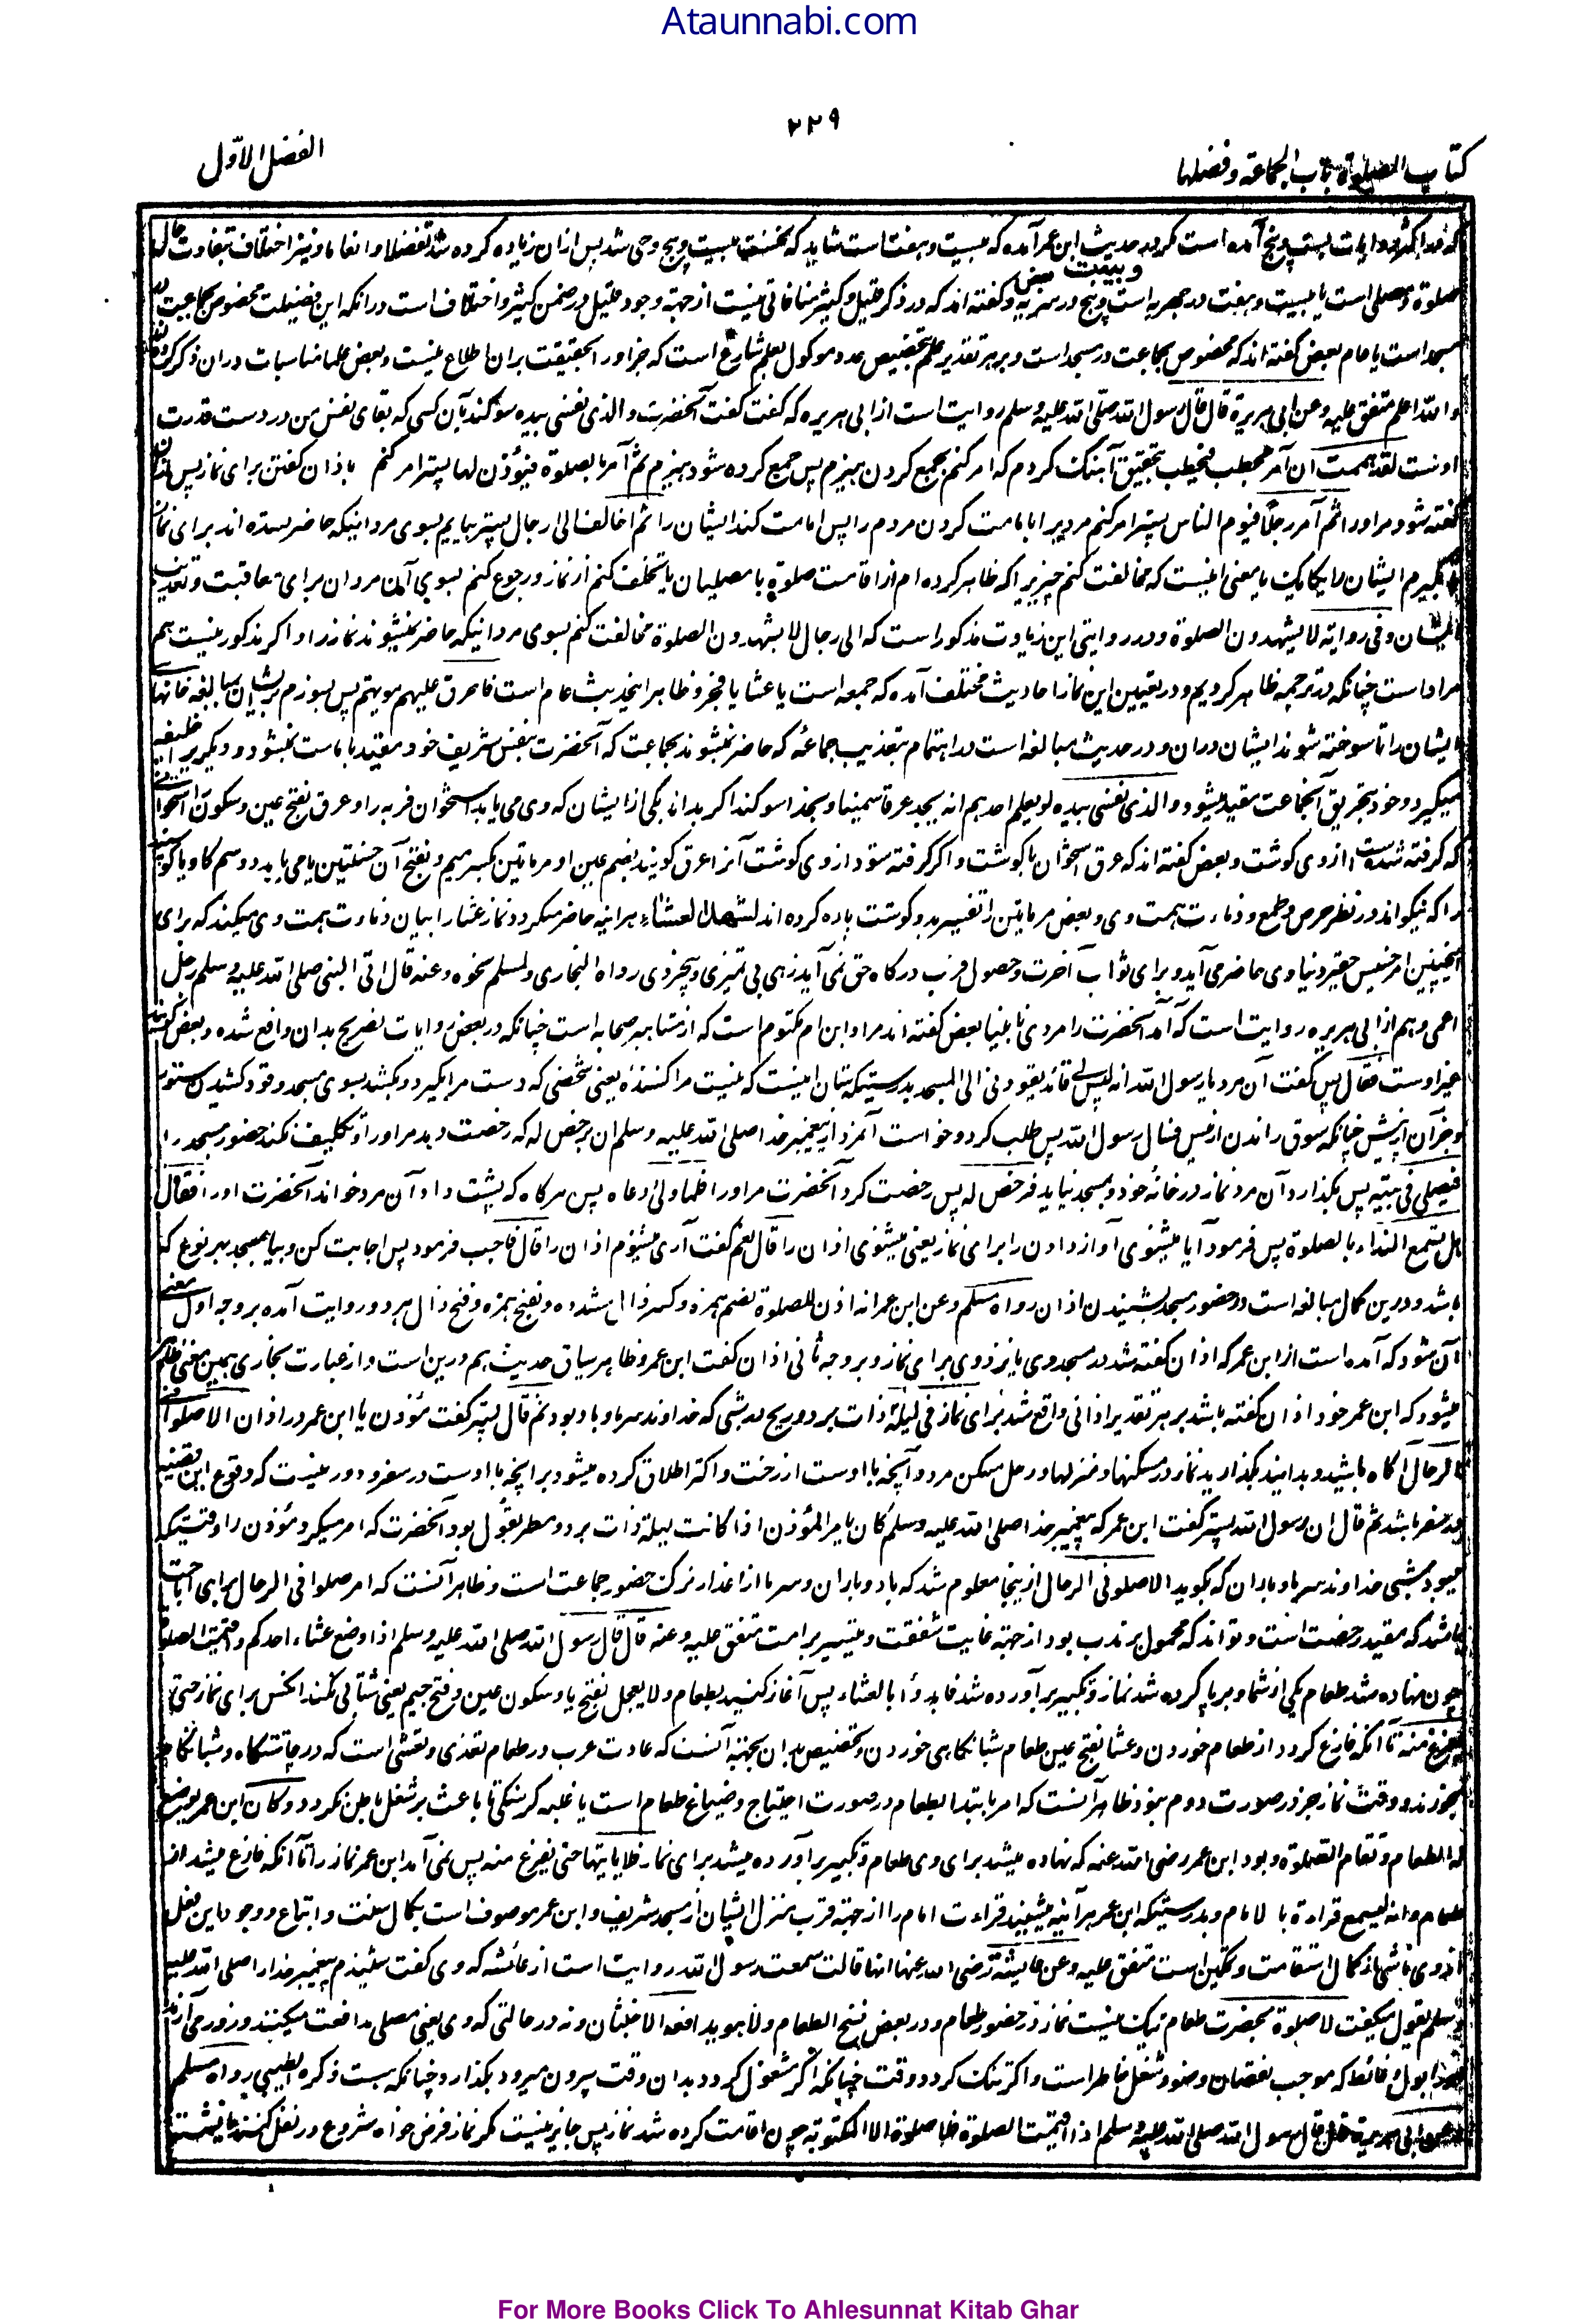 Ataunnabi.com
۲۲۹
کتاب الصلوة باب الجماعة و فضلها
الفصل الاول
که در اکثر روایات بیست و پنج آمده است مگر در حدیث ابن عمر آمده که بیست و هفت است شاید که نخست بیست و پنج وحی شد پس ازان زیاده کرده شد تفضلا و انعاما و نیز اختلاف بتفاوت حال
صلوة و مصلی است یا بیست و هفت در جهریه است و بیست و پنج در سریه و بعض گفته اند که در ذکر قلیل و کثیر منافاتی نیست از جهة وجود قلیل در ضمن کثیر و اختلاف است درانکه این فضیلت مخصوص بجماعت در
مسجد است یا عام بعض گفته اند که مخصوص بجماعت در مسجد است و بر هر تقدیر علم تخصیص عدد موکول بعلم شارع است که جز او را بحقیقت بران اطلاع نیست و بعض علما مناسبات دران ذکر کرده
والله اعلم متفق علیه وعن ابی هریرة قال قال رسول الله صلی الله علیه وسلم روایت است از ابی هریره که گفت گفت آنحضرت والذی نفسی بیده سوگند بآن کسی که بقای نفس من در دست قدرت
اوست لقد هممت ان آمر بحطب فیحطب بتحقیق آهنگ کردم که امر کنم بجمع کردن هیزم پس جمع کرده شود هیزم ثم آمر بالصلوة فیؤذن لها پستر امر کنم باذان گفتن برای نماز پس اذان
گفته شود مر او را ثم آمر رجلا فیؤم الناس پستر امر کنم مردیرا بامامت کردن مردم را پس امامت کند ایشان را ثم اخالف الی رجال پستر بیایم بسوی مردانیکه حاضر نشده اند برای نماز
بگیرم ایشان را یکایک یا معنی اینست که مخالفت کنم چیزیرا که ظاهر کرده ام از اقامت صلوة با مصلیان یا تخلف کنم از نماز و رجوع کنم بسوی آن مردان برای عاقبت و تعذیب
ایشان و فی روایة لا یشهدون الصلوة و در روایتی این زیادت مذکور است که الی رجال لا یشهدون الصلوة مخالفت کنم بسوی مردانیکه حاضر نمیشوند نماز را و اگر مذکور نیست هم
مراد است چنانکه در ترجمه ظاهر کردیم و در تعیین این نماز احادیث مختلف آمده که جمعه است یا عشا یا فجر و ظاهر این حدیث عام است فاحرق علیهم بیوتهم پس بسوزم بر ایشان بمبالغه خانهای
ایشان را تا سوخته شوند ایشان دران و در حدیث مبالغه است در اهتمام بتعذیب جماعه که حاضر نمیشوند بجماعت که آنحضرت بنفس شریف خود مقید بامامت نمیشود و دیگریرا خلیفه
میگیرد و خود بتحریق آنجماعت مقید میشود والذی نفسی بیده لو یعلم احدهم انه یجد عرقا سمینا و بخدا سوگند اگر بداند یکی از ایشان که وی می یابد استخوان فربه را و عرق بفتح عین و سکون را استخوانی
که گرفته شده است از وی گوشت و بعض گفته اند که عرق استخوان با گوشت و اگر گرفته شود از وی گوشت آنرا عرق گویند بضم عین او مرماتین بکسر میم و بفتح آن حسنتین یا می یابد دو سم گاو یا گوسفند
را که نیکو اند در نظر حرص و طمع و دناءت همت وی و بعض مرماتین را تفسیر بدو گوشت پاره کرده اند لشهد العشاء هر اینه حاضر میگردد نماز عشا را بیان دناءت همت وی میکند که برای
اینچنین امر خسیس حقیر دنیاوی حاضر می آید و برای ثواب آخرت و حصول قرب درگاه حق نمی آید زهی بی تمیزی و بیخردی رواه البخاری ولمسلم نحوه وعنه قال اتی النبی صلی الله علیه وسلم رجل
اعمی و هم از ابی هریره روایت است که آمد آنحضرت را مردی نابینا بعض گفته اند مراد ابن ام مکتوم است که از مشاهیر صحابه است چنانکه در بعض روایات تصریح بدان واقع شده و بعض گویند
غیر اوست فقال پس گفت آن مرد یا رسول الله انه لیس لی قائد یقودنی الی المسجد بدرستیکه شان اینست که نیست مرا کشنده یعنی شخصی که دست مرا بگیرد و بکشد بسوی مسجد و قود کشیدن ستور
و جز آن از پیش چنانکه سوق راندن از پس فسال رسول الله پس طلب کرد و خواست آنمرد از پیغمبر خدا صلی الله علیه وسلم ان یرخص له که رخصت دهد مر او را و تکلیف نکند حضور مسجد را
فیصلی فی بیته پس بگذارد آن مرد نماز در خانه خود و بمسجد نیاید فرخص له پس رخصت کرد آنحضرت مر او را فلما ولی دعاه پس هرگاه که پشت داد آن مرد خواند آنحضرت او را فقال
هل تسمع النداء بالصلوة پس فرمود آیا میشنوی آواز دادن را برای نماز یعنی میشنوی اذان را قال نعم گفت آری میشنوم اذان را قال فاجب فرمود پس اجابت کن و بیا بمسجد بهر نوع که
باشد و درین کمال مبالغه است در حضور مسجد بشنیدن اذان رواه مسلم وعن ابن عمر انه اذن للصلوة بضم همزه و کسر ذال مشدده و بفتح همزه و فتح ذال هر دو روایت آمده بر وجه اول معنی
آن شود که آمده است از ابن عمر که اذان گفته شد در مسجد وی یا نزد وی برای نماز و بر وجه ثانی اذان گفت ابن عمر و ظاهر سیاق حدیث هم درین است و از عبارت بخاری همین معنی ظاهر
میشود که ابن عمر خود اذان گفته باشد بر هر تقدیر اذانی واقع شد برای نماز فی لیلة ذات برد و ریح در شبی که خداوند سرما و باد بود ثم قال پستر گفت مؤذن یا ابن عمر در اذان الا صلوا فی
الرحال آگاه باشید و بدانید بگذارید نماز در مسکنها و منزلها و رحل مسکن مرد و آنچه با اوست از رخت و اکثر اطلاق کرده میشود بر آنچه با اوست در سفر و دور نیست که وقوع این قضیه
در سفر باشد ثم قال ان رسول الله پستر گفت ابن عمر که پیغمبر خدا صلی الله علیه وسلم کان یامر المؤذن اذا کانت لیلة ذات برد و مطر یقول بود آنحضرت که امر میکرد مؤذن را وقتیکه
میبود شبی خداوند سرما و باران که بگوید الا صلوا فی الرحال ازینجا معلوم شد که باد و باران و سرما از اعذار ترک حضور جماعت است و ظاهر آنست که امر صلوا فی الرحال برای اباحت
باشد که مفید رخصت است و تواند که محمول بر ندب بود از جهة غایت شفقت و تیسیر بر امت متفق علیه وعنه قال قال رسول الله صلی الله علیه وسلم اذا وضع عشاء احدکم و اقیمت الصلوة
چون نهاده شد طعام یکی از شما و برپا کرده شد نماز و تکبیر برآورده شد فابدؤا بالعشاء پس آغاز کنید بطعام ولا یعجل بفتح یا و سکون عین و فتح جیم یعنی شتابی نکند آنکس برای نماز حتی
یفرغ منه تا آنکه فارغ گردد از طعام خوردن و عشا بفتح عین طعام شبانگاهی خوردن و تخصیص بدان بجهة آنست که عادت عرب در طعام تغذی و تعشی است که در چاشتگاه و شبانگاه
میخورند و وقت نماز جز در صورت دوم نبود و ظاهر آنست که امر بابتدا بطعام در صورت احتیاج و ضیاع طعام است یا غلبه گرسنگی تا باعث بر شغل باطن نگردد وکان ابن عمر یوضع
له الطعام و تقام الصلوة و بود ابن عمر رضی الله عنه که نهاده میشد برای وی طعام و تکبیر برآورده میشد برای نماز فلا یاتیها حتی یفرغ منه پس نمی آمد ابن عمر نماز را تا آنکه فارغ میشد از
طعام وانه لیسمع قراءة الامام و بدرستیکه ابن عمر هر آینه میشنید قراءت امام را از جهة قرب منزل ایشان از مسجد شریف و ابن عمر موصوف است بکمال سنت و اتباع و وجود این فعل
از وی ناشی از کمال استقامت و تمکین است متفق علیه وعن عایشة رضی الله عنها انها قالت سمعت رسول الله روایت است از عائشه که وی گفت شنیدم پیغمبر خدا را صلی الله علیه
وسلم یقول میگفت لا صلوة بحضرت طعام نیک نیست نماز در حضور طعام و در بعض نسخ الطعام ولا هو یدافعه الاخبثان و نه در حالتی که وی یعنی مصلی مدافعت میکنند و زور می آرند
بول و غائط که موجب نقصان وضو و شغل خاطر است و اگر تنگ گردد وقت چنانکه اگر مشغول گردد بدان وقت بیرون میرود بگذارد چنانکه هست ذکره الطیبی رواه مسلم
وعن ابی هریرة قال قال رسول الله صلی الله علیه وسلم اذا اقیمت الصلوة فلا صلوة الا المکتوبة چون اقامت کرده شد نماز پس جایز نیست مگر نماز فرض خواه شروع در نفل کنند
For More Books Click To Ahlesunnat Kitab Ghar